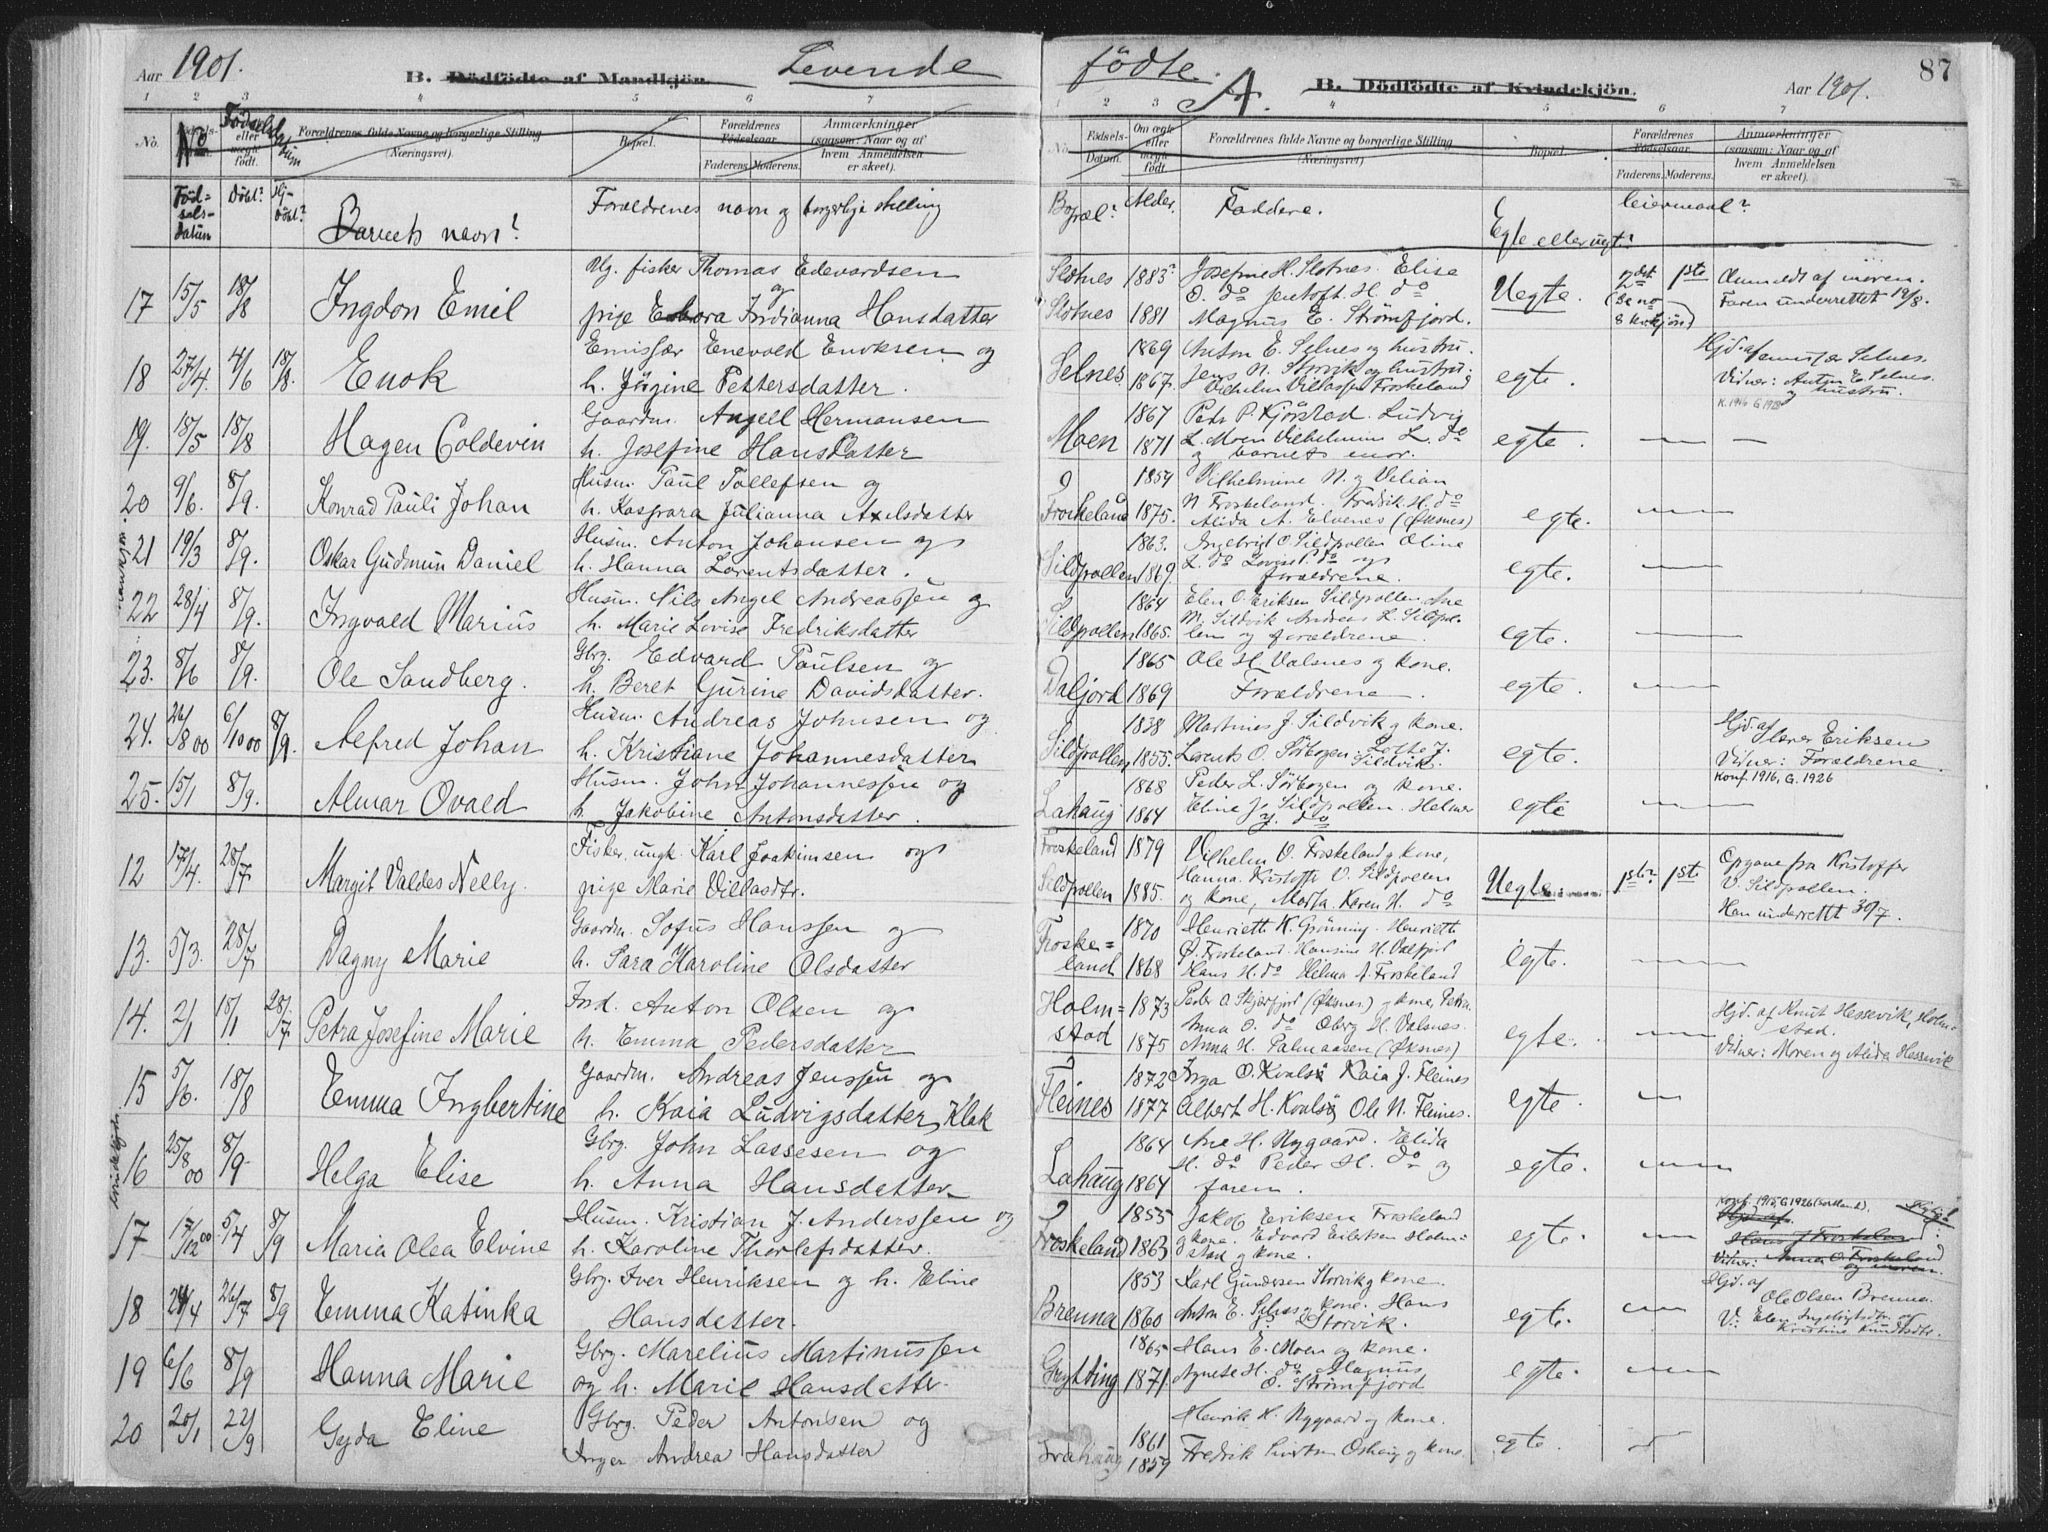 Aar 1901. B. Dödfödte af Mandkjön. Levende
fødte. A. B. Dödfödte af Kvindekjön. Aar 1901. 87
1 2 3 4 5 6 7
1 2 3 4 5 6 7
No. Forældrenes fulde Navne og borgerlige Stilling (Næringsvei). Bopæl. Forældrenes Fødselsaar Faderens. Moderens. Anmærkninger (saasom: Naar og af hvem Anmeldelsen er skeet).
No. Fødsels-Datum. Om ægte eller uægte født. Forældrenes fulde Navne og borgerlige Stilling (Næringsvei). Bopæl. Forældrenes Fødselsaar Faderens. Moderens. Anmærkninger (saasom: Naar og af hvem Anmeldelsen er skeet).
Fødselsdatum Døbt? Hj-døbt? Barnets navn? Forældrenes navn og borgerlige stilling
Bopæl? Alder. Faddere. Egte eller uegt? leiermaal?
17 15/5 18/8 Ingdon Emil Ug. fisker Thomas Edevardsen og
pige Indianna Hansdatter
Slotnes 1883 Josefine H. Slotnes. Elise
Slotnes 1881 Magnus E. Strömfjord. Uegte. 2det 1ste Anmeldt af moren.
Faren underrettet 19/8.
18 27/4. 4/6 18/8 Enok Emissær Enevold Enoksen og
h. Jörgine Pettersdatter.
Selnes 1869 Anton E. Selnes og hustru.
1867. Jens N. Storvik og hustru. egte. Hjd. af emissær Selnes.
Vidner: Anton E. Selnes og hustru.
K. 1916
19. 18/5 18/8 Hagen Coldevin Gaardm. Angell Hermansen
h. Josefine Hansdatter
Moen 1867 Peder P. Kjörstad. Ludvig
1871 L. Moen Vilhelmine L. do
og barnets mor. egte.
20 9/6. 8/9. Konrad Pauli Johan Husm. Paul Tollefsen og
h. Kaspara Julianna Axelsdatter
Froskeland 1854 Vilhelmine N. og Vilian
1875. N. Froskeland. Fredrik H. do
Alida A. Elvenes (Øksnes) egte.
21 19/3 8/9. Oskar Gudmun Daniel Husm. Anton Johansen og
h. Hanna Lorentsdatter.
Sildpollen 1863. Ingebrigt O. Sildpollen Oline
1869. L. do Lovise P. do og
forældrene. egte.
22 28/4 8/9. Ingvald Marius Husm. Nils Angel Andreassen og
h. Marie Lovise Fredriksdatter
Sildpollen 1864 Elen O. Eriksen Sildpollen Ane
1865. M. Sildvik Andreas L. Sildpol-
len og forældrene. egte.
23. 8/6 8/9. Ole Sandberg. Gbrg. Edvard Paulsen og
h. Beret Gurine Davidsdatter.
Daljord 1865 Ole H. Valsnes og kone.
1869 Forældrene. egte.
24. 26/8 00 6/10 00 8/9. Alfred Johan Husm. Andreas Johnsen og
h. Kristiane Johannesdatter
Sildpollen 1838 Martines J. Sildvik og kone.
1855. Lorents O. Sörbogen. Lotte J. Sildvik. egte. Hjd. af
lærer Eriksen
Vidner: Forældrene.
Konf. 1916, G. 1926
25. 15/1 8/9. Almar Ovald Husm. John Johannessen og
h. Jakobine Antonsdatter.
Lahaug 1868 Peder L. Sörbogen og kone.
1864 Eline J. Sildpollen. Helmer
J. do egte
12 17/4. 28/7 Margit Valdes Nelly. Fisker, ungk. Karl Joakimsen og
pige Marie Villasdtr.
Froskeland 1879 Vilhelm V. Froskeland og kone,
Sildpollen 1885. Hanna. Kristoffer V. Sildpollen
og kone, Marta. Karen H. do Uegte. 1ste 1ste Opgave fra Kristoffer
V. Sildpollen.
Han underrettet 30/7.
13. 5/3. 28/7 Dagny Marie Gaardm. Sofus Hanssen og
h. Sara Karoline Olsdatter
Froske=
land 1870 Henriette K. Grönning. Henriette
Ø. Froskeland. Hansine H. Valfjord
1868 Hans H. do Hilma A. Froskeland egte.
14. 2/1 18/1 28/7 Petra Josefine Marie Ind. Anton Olsen og
h. Emma Pedersdatter
Holm=
stad 1873 Peder A. Skjærfjord (Øksnes) og kone, Petra
Anna O. do Oberg H. Valsnes.
1875 Anna H. Palmaasen (Øksnes) egte. Hjd. af Knut Hessevik, Holm-
stad.
Vidner: Moren og Alida Hessevik
15 5/6. 18/8 Emma Ingbertine Gaardm. Andreas Jenssen og
h. Kaia Ludvigsdatter, Klak
Fleines 1872 Inga O. Kvalsö Kaia J. Fleines
1877 Albert H. Kvalsö Ole N. Fleines. egte.
16 25/8 00 8/9. Helga Elise Gbrg. John Lassesen og
h. Anna Hansdatter
Lahaug 1864 Ane H. Nygaard. Elida
1864 H. do Peder H. do og
faren. egte.
17 17/12 00 5/4 8/9 Maria Olea Elvine Husm. Kristian J. Anderssen og
h. Karoline Thorlefsdatter.
Froskeland 1855 Jakob Eriksen Froskeland
1863 og kone. Edvard Eriksen Holm-
stad og kone. egte. Konf. 1915, G. 1926
Hjd. af
Hans J. Froskeland.
Vidner: Anna O. Froskeland
og moren.
18 24/4 26/7 8/9 Emma Katinka Gbrg. Iver Henriksen og h. Eline
Hansdatter.
Brenna 1853 Karl Gundersen Storvik og kone.
1860 Anton E. Selnes og kone. Hans
Storvik. egte. Hjd. af
Ole Olsen Brenna.
V: Elen Ingebrigtsdtr. og
Kristine Knudsdtr.
19 6/6 8/9 Hanna Marie Gbrg. Marelius Martinussen
og h. Marie Hansdatter.
Grytting 1865 Hans E. Moen og kone.
1871 Agnete H. do Magnus
E. Strömfjord egte.
20 20/1 22/9 Gyda Eline Gbrg. Peder Antonsen og
Inger Andrea Hansdatter
Henrik H. Nygaard og kone.
1861
1859 Fredrik og kone. egte.